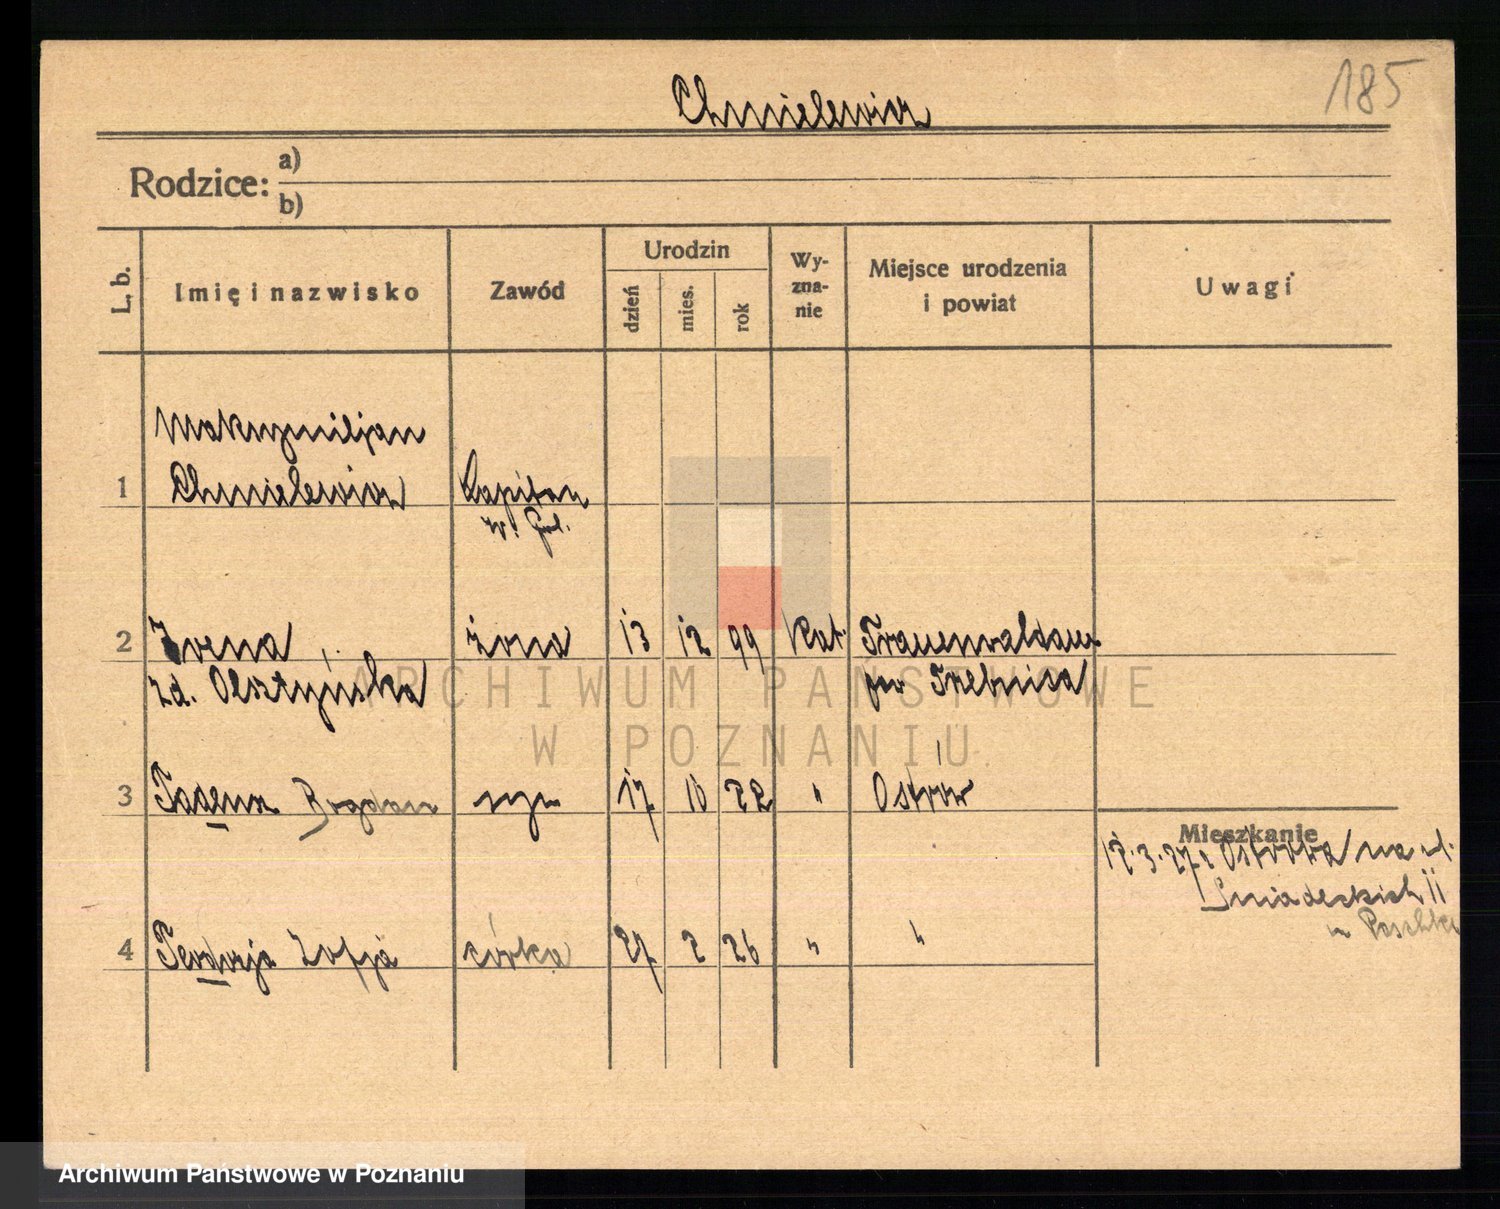 185
Chmielewicz
Rodzice: a)
b)
L. b.
Imię i nazwisko
Zawód
Urodzin
dzień
mies.
rok
Wy-
zna-
nie
Miejsce urodzenia
i powiat
Uwagi
Maksymiljan
1 Chmielewicz Kapitan
2 Irena żona 13 12 99 kat. Frauenwaldau
zd. Olsztyńska pow Trebnica
ARCHIWUM PAŃSTWOWE
W POZNANIU
3 Tadeusz Bogdan syn 17 10 22 " Ostrów
Mieszkanie
12.3.27 z Ostrowa na ul.
Śniadeckich 11
4 Teodozja Zofja córka 27 2 26 " "
Archiwum Państwowe w Poznaniu